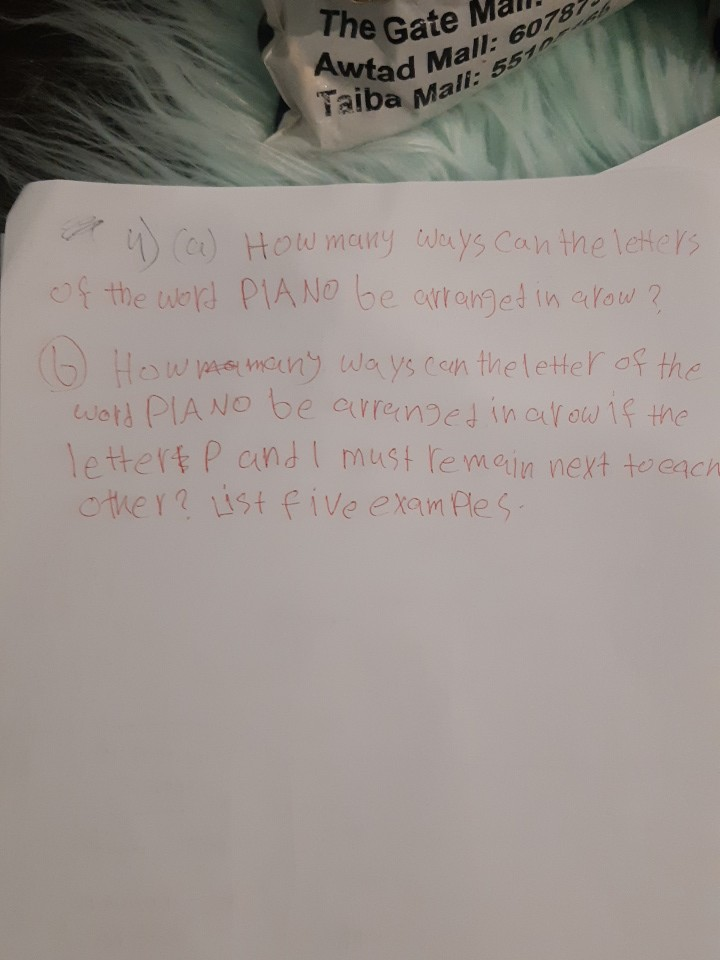 The Gate Mall:
Awtad Mall:
Taiba Mall:
4) (a) How many ways can the letters
of the word PIANO be arranged in a row?
(b) How many ways can the letter of the
word PIANO be arranged in a row if the
letters P and I must remain next to each
other? List five examples.